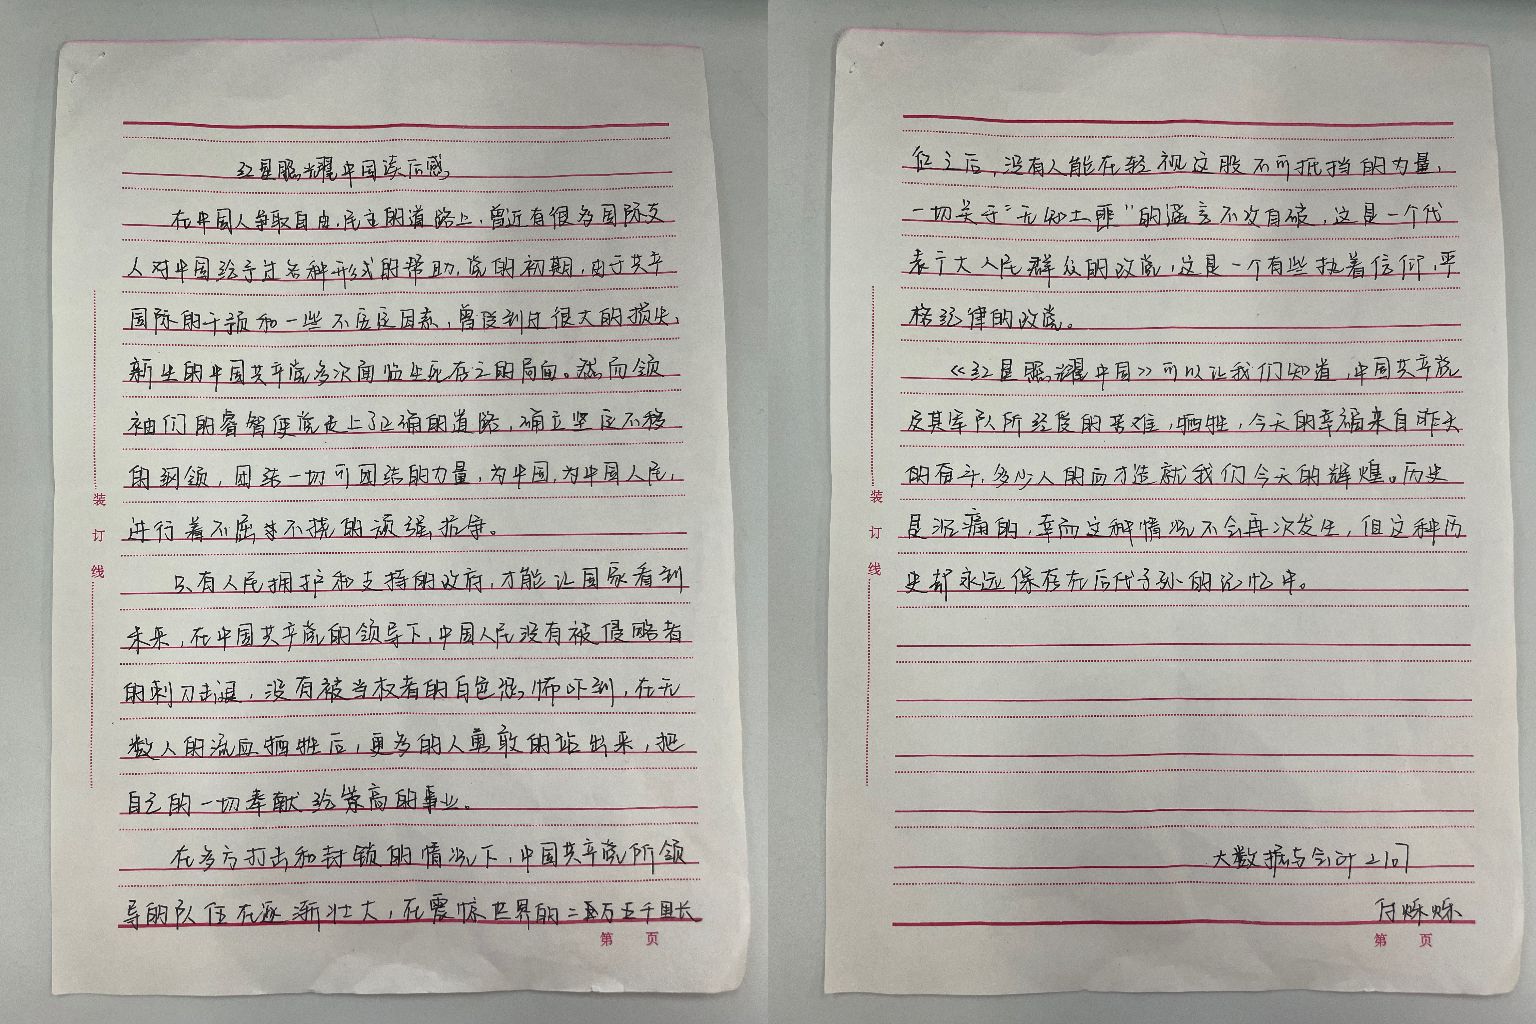 红星照耀中国读后感
在中国人争取自由、民主的道路上，曾近有很多国际友
人对中国给予过各种形式的帮助，党的初期，由于共产
国际的干预和一些不应定因素，曾受到过很大的损失，
新生的中国共产党多次面临生死存亡的局面。然而领
袖们的睿智使党走上了正确的道路，确立坚定不移
的纲领，团结一切可团结的力量，为中国，为中国人民，
进行着不屈不挠的顽强抗争。
只有人民拥护和支持的政府，才能让国家看到
未来，在中国共产党的领导下，中国人民没有被侵略者
的刺刀击退，没有被当权者的白色恐怖吓到，在无
数人的流血牺牲后，更多的人勇敢的站出来，把
自己的一切奉献给崇高的事业。
在多方打击和封锁的情况下，中国共产党所领
导的队伍在逐渐壮大，在震惊世界的二万五千里长
征之后，没有人能在轻视这股不可抵挡的力量，
一切关于“无知土匪”的谣言不攻自破，这是一个代
表广大人民群众的政党，这是一个有些执着信仰，严
格纪律的政党。
《红星照耀中国》可以让我们知道，中国共产党
及其军队所经受的苦难，牺牲，今天的幸福来自昨天
的奋斗，多少人的血才造就我们今天的辉煌。历史
是沉痛的，幸而这种情况不会再次发生，但这种历
史却永远保存在后代子孙的记忆中。
大数据与会计2107
付烁烁
装
订
线
第 页
装
订
线
第 页